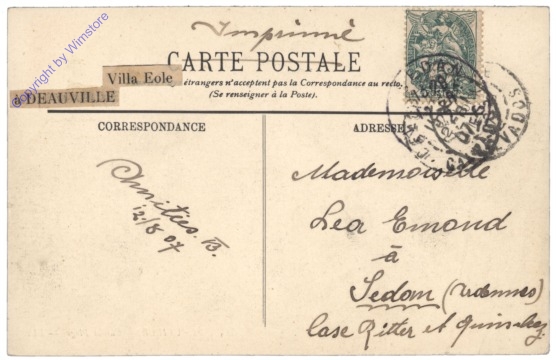 Imprimé
CARTE POSTALE
étrangers n'acceptent pas la Correspondance au recto
(Se renseigner à la Poste).
Villa Eole
à DEAUVILLE
copyright by Wimstore
CORRESPONDANCE
ADRESSE
Amitiés. B.
12/8 07
Mademoiselle
Lea Emond
à
Sedan (Ardennes)
Case Ritter et
CALVADOS